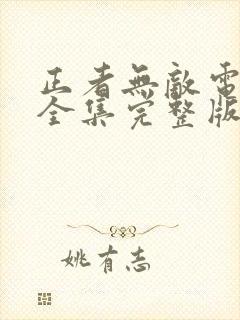 正者無敵電
全集完整版
姚有志